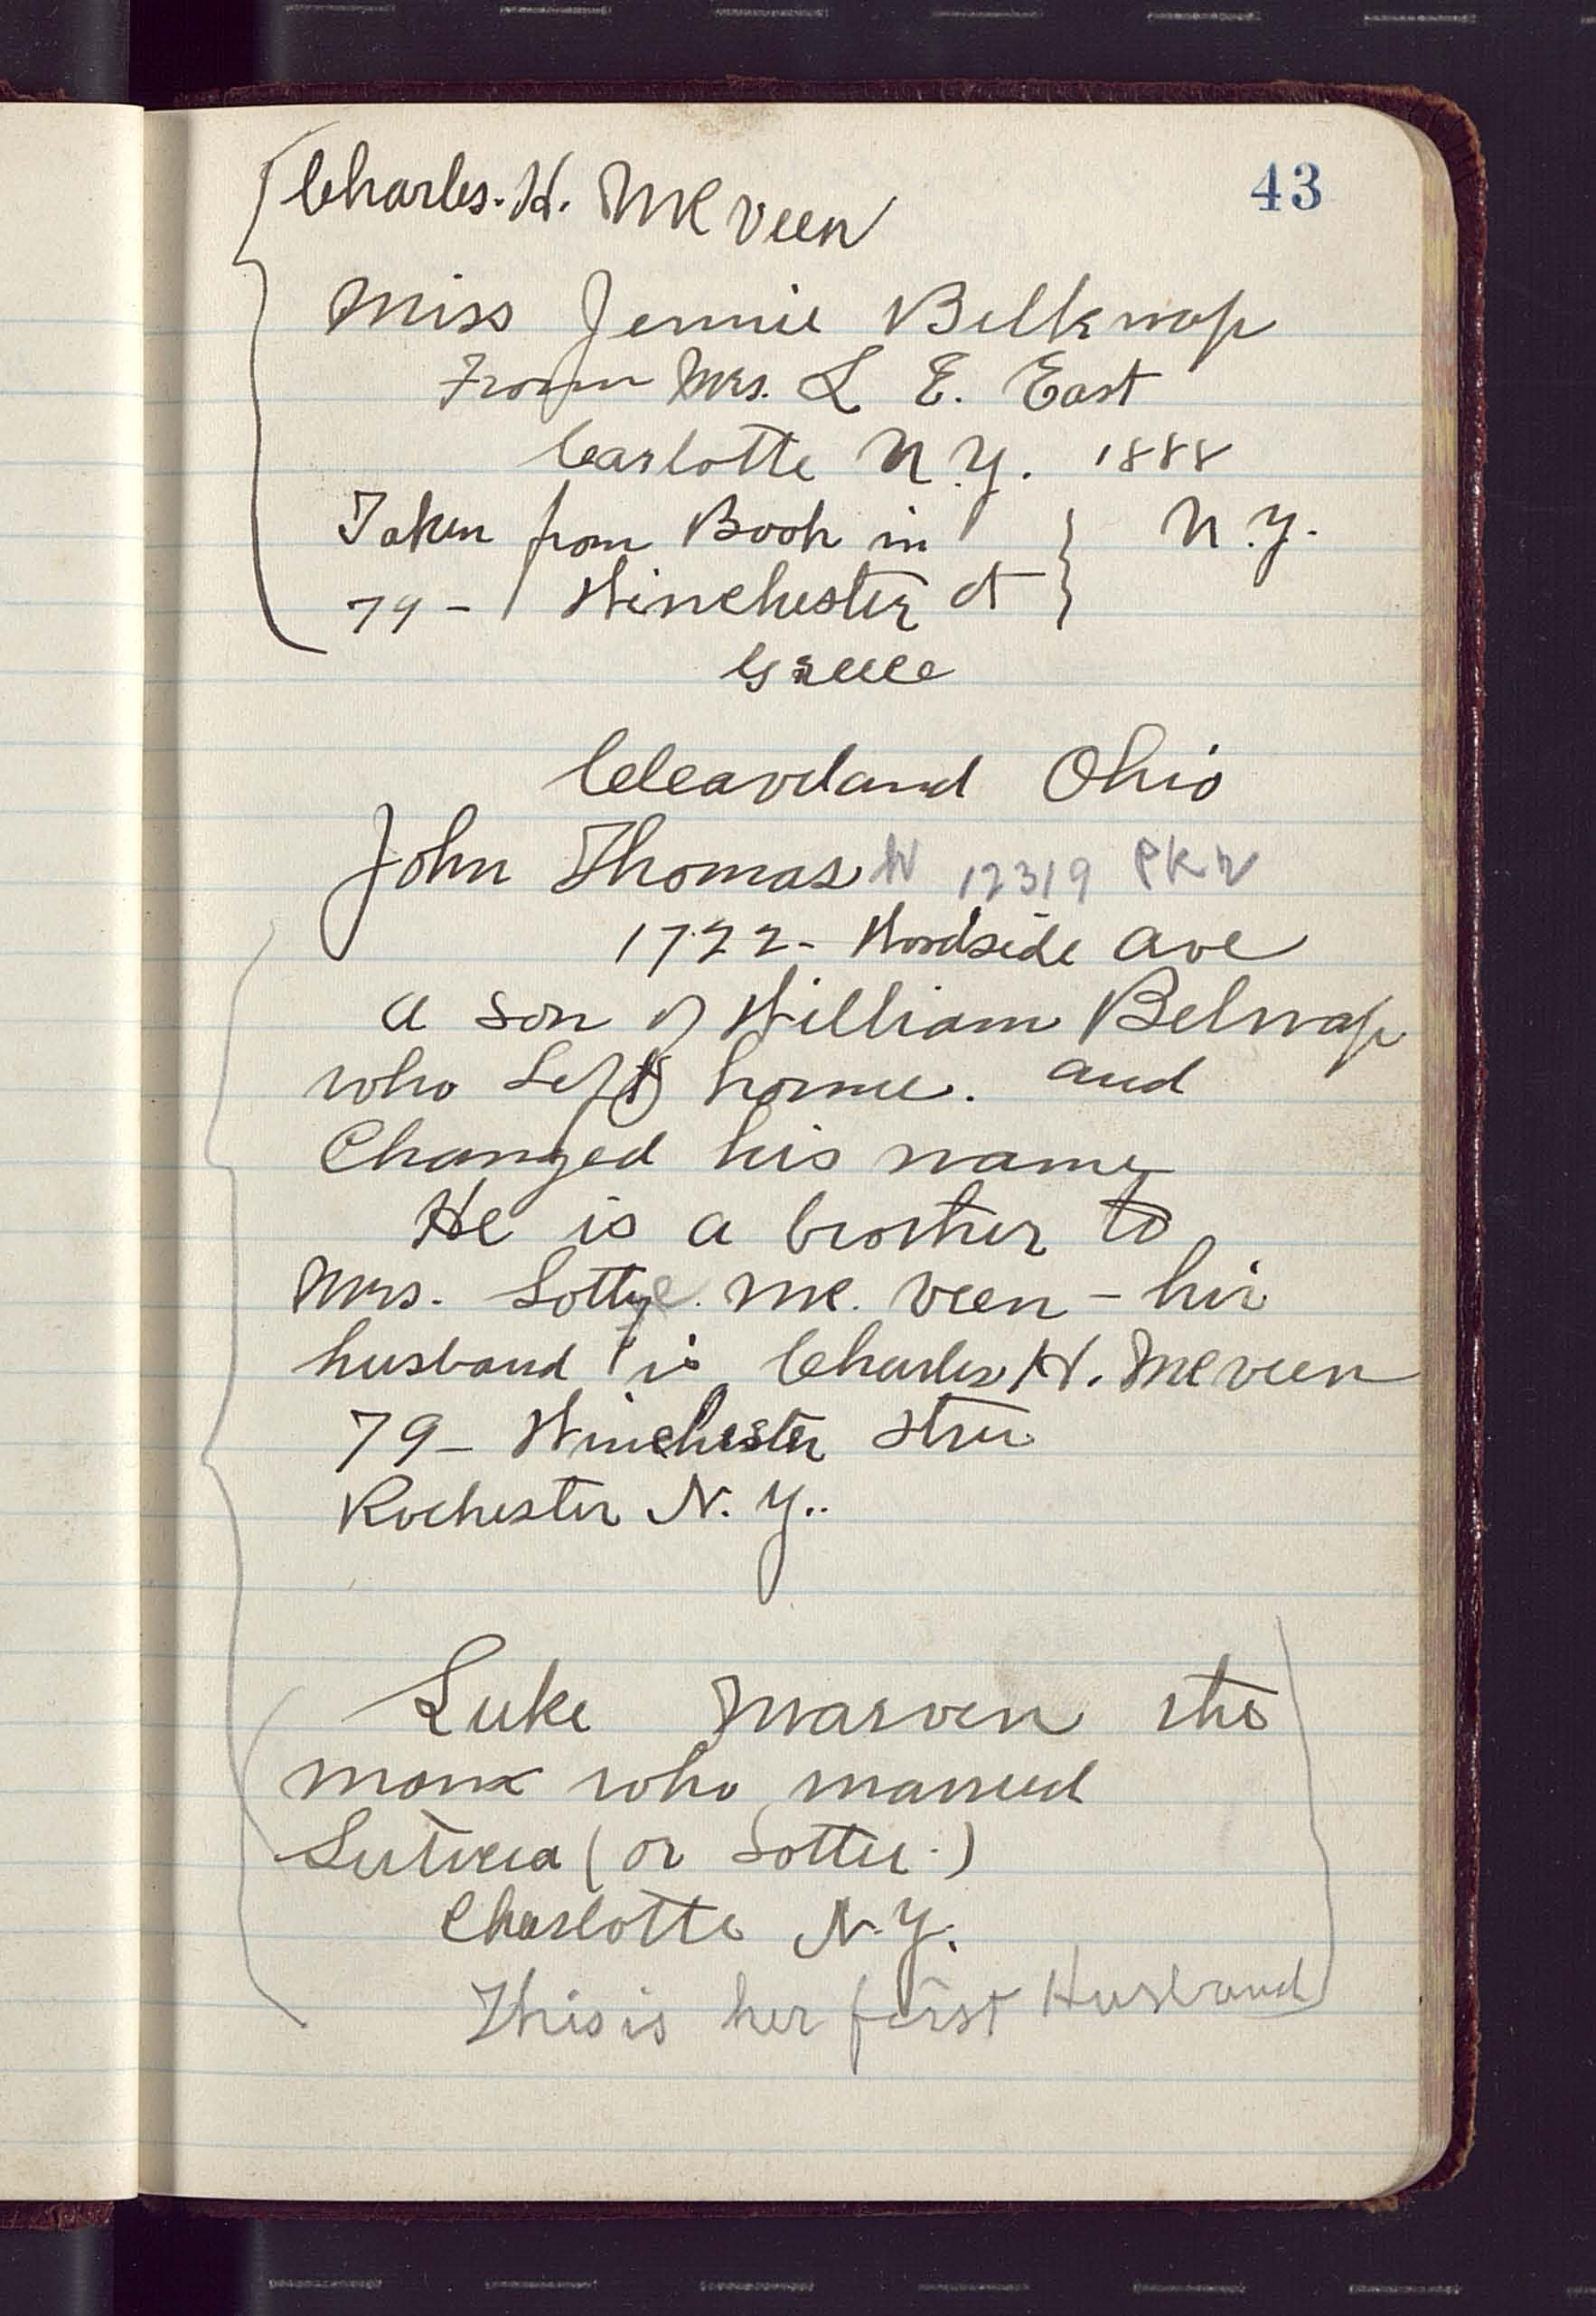 43
Charles. H. Mc Veen
Miss Jennie Belknap
From Mrs. L E. East
Carlotte N.Y. 1888
Taken from Book in } N.Y.
79 - Winchester st }
Greece
Cleaveland Ohio
John Thomas W 12319 PK
1722 - Woodside ave
a son of William Belnap
who Left home. and
Changed his name
He is a brother to
Mrs. Lottye. Mc. Veen - hir
husband is Charles H. Mcveen
79 - Winchester stree
Rochester N. Y..
Luke Marven the
man who married
(or Lottie.)
Charlotte N.Y.
This is her first Husband